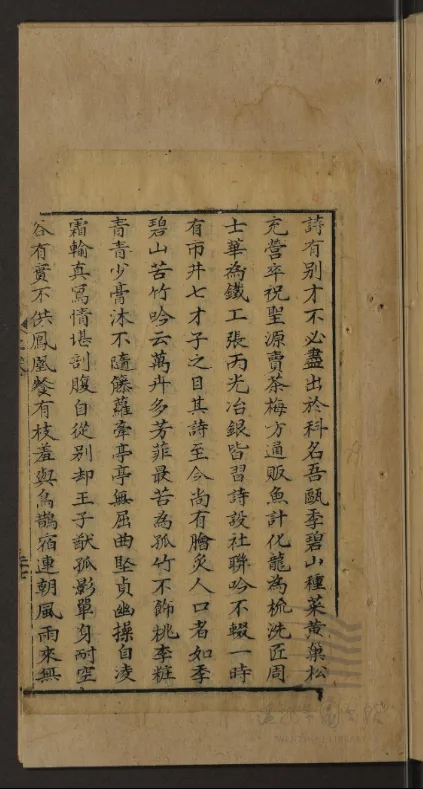 詩有別才不必盡出於科名吾甌季碧山種菜黃巢松
充營卒祝聖源賣茶梅方通販魚計化龍為梳洗匠周
士華為鐵工張丙光冶銀皆習詩設社聯吟不輟一時
有市井七才子之目其詩至今尚有膾炙人口者如季
碧山苦竹吟云萬卉多芳菲最苦為孤竹不飾桃李粧
青青少膏沐不隨籐蘿牽亭亭無屈曲堅貞幽操自凌
霜輪真寫情堪剖腹自從別却王子猷孤影單身耐空
谷有實不供鳳凰餐有枝羞與烏鵲宿連朝風雨來無